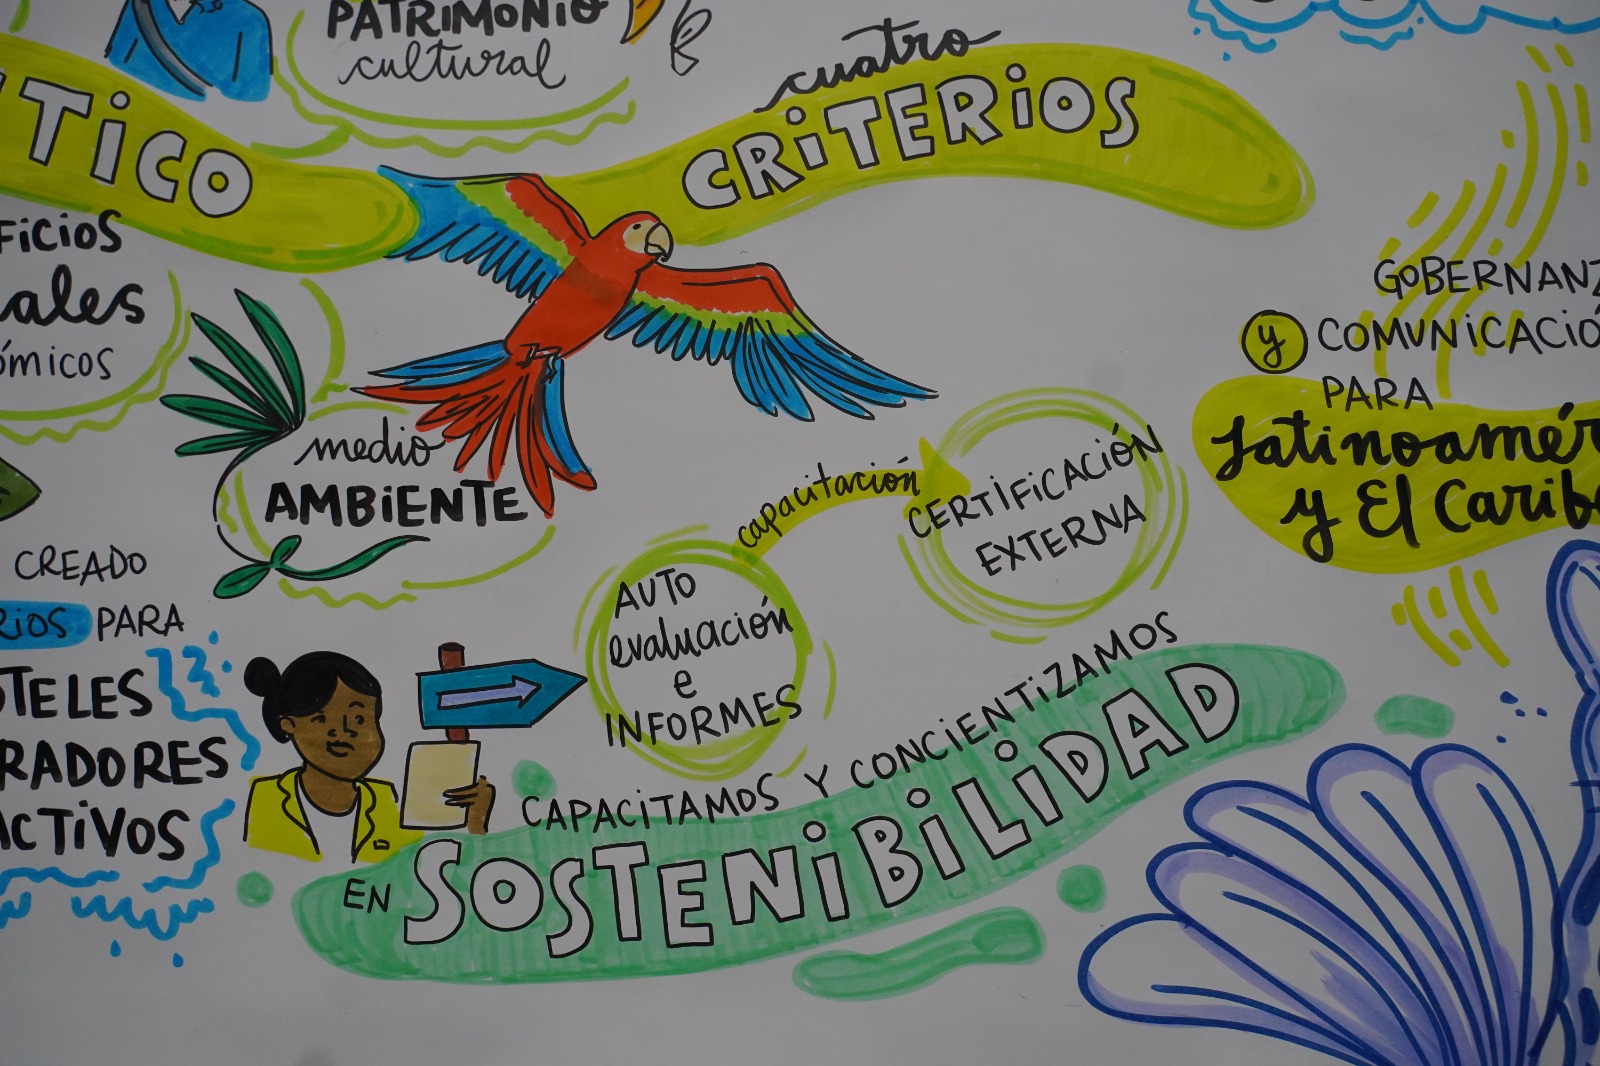 PATRIMONIO
cultural
cuatro
CRITERIOS
TICO
FICIOS
ales
ÓMICOS
medio
AMBIENTE
CREADO
RIOS PARA
TELES
RADORES
ACTIVOS
AUTO
evaluación
e
INFORMES
capacitación
CERTIFICACIÓN
EXTERNA
CAPACITAMOS Y CONCIENTIZAMOS
EN SOSTENIBILIDAD
GOBERNANZ
y COMUNICACIÓ
PARA
Latinoamér
y El Carib